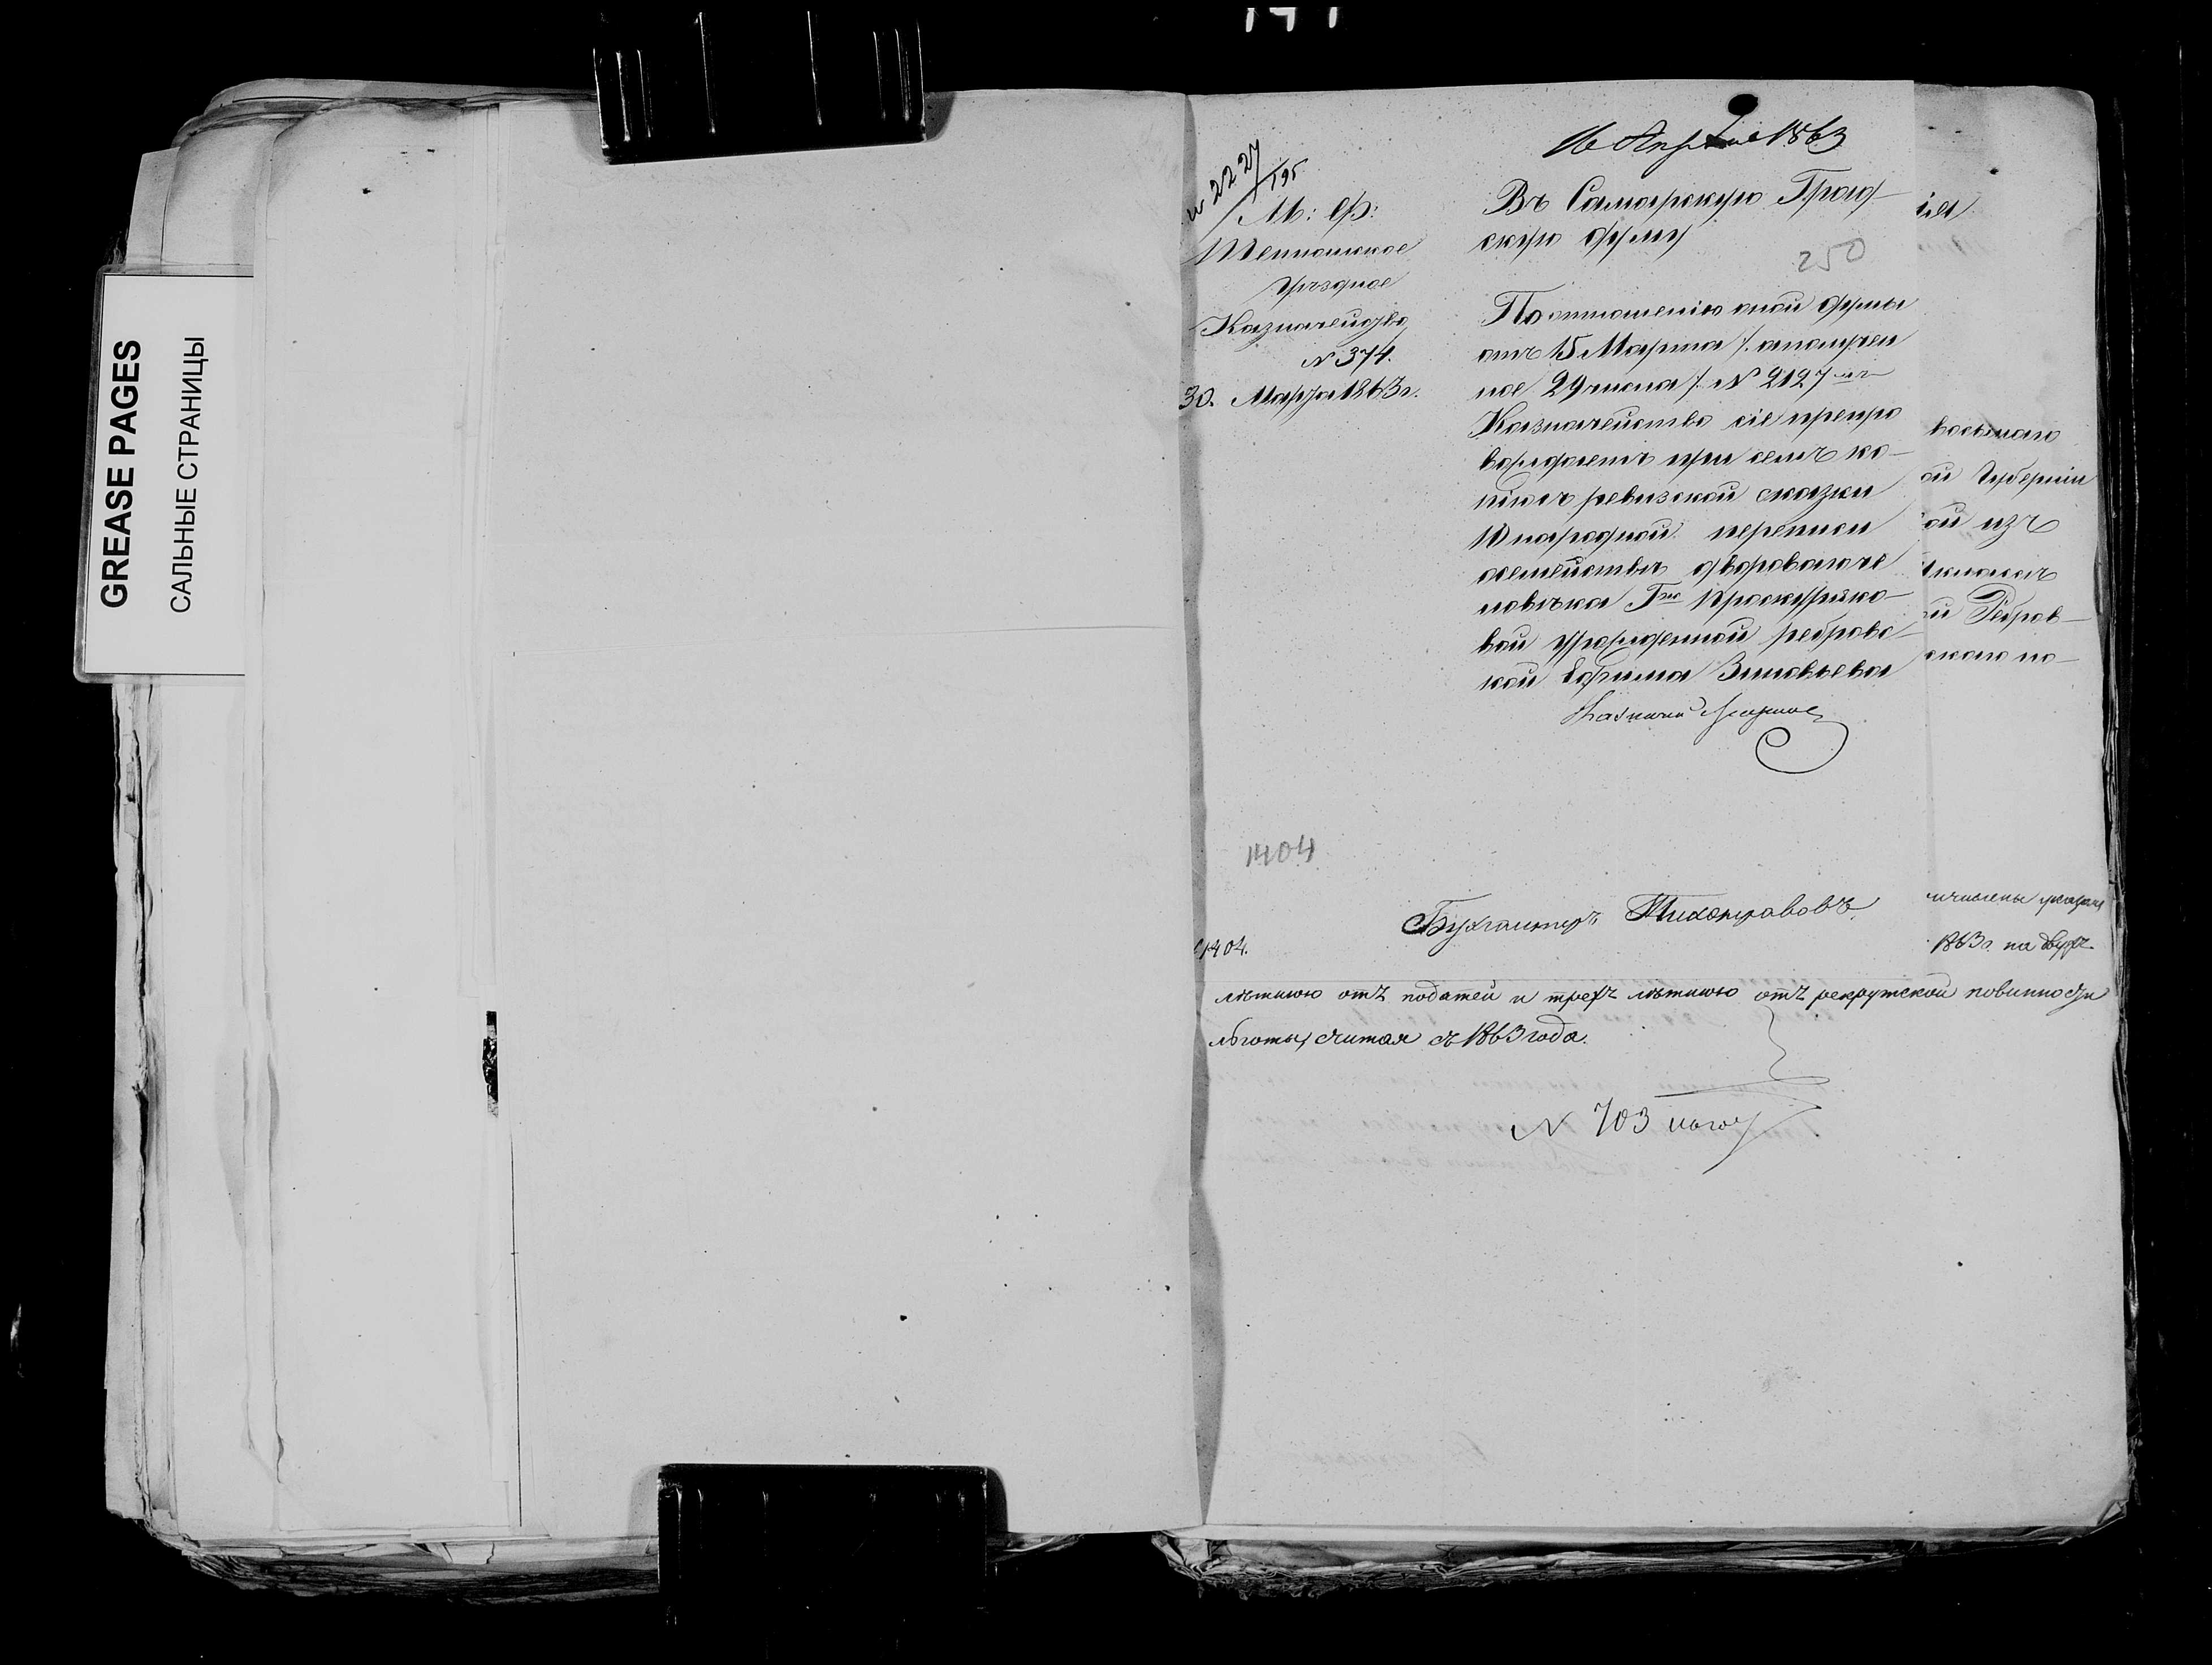 GREASE PAGES
САЛЬНЫЕ СТРАНИЦЫ
16 Апреля 1863
№ 2227
195
М: Ф:
уѣздное
Казначейство
№ 374.
30. Марта 1863 г.
Въ Самарскую Град-
скую думу
250
По отношенію оной думы
отъ 15 Марта /. получен
ное 29 числа /. № 2127
Казначейство сіе препро
вождаетъ при семъ ко-
піюсъ ревизской сказки
10 народной переписи
семейства двороваго че
ловѣка Г-жи
вой урожденной ребровс-
кой Ефима Зиновьева
Казначей
1404
Бухгалтеръ Тихонравовъ.
1404.
восьмаго
ой Губерніи
ой изъ
й Ребров-
скаго по-
ичислены указомъ
1863 г. на двухъ
лѣтнюю отъ податей и трехъ лѣтнюю отъ рекрутской повинности
льготы, считая съ 1863 года.
№ 703